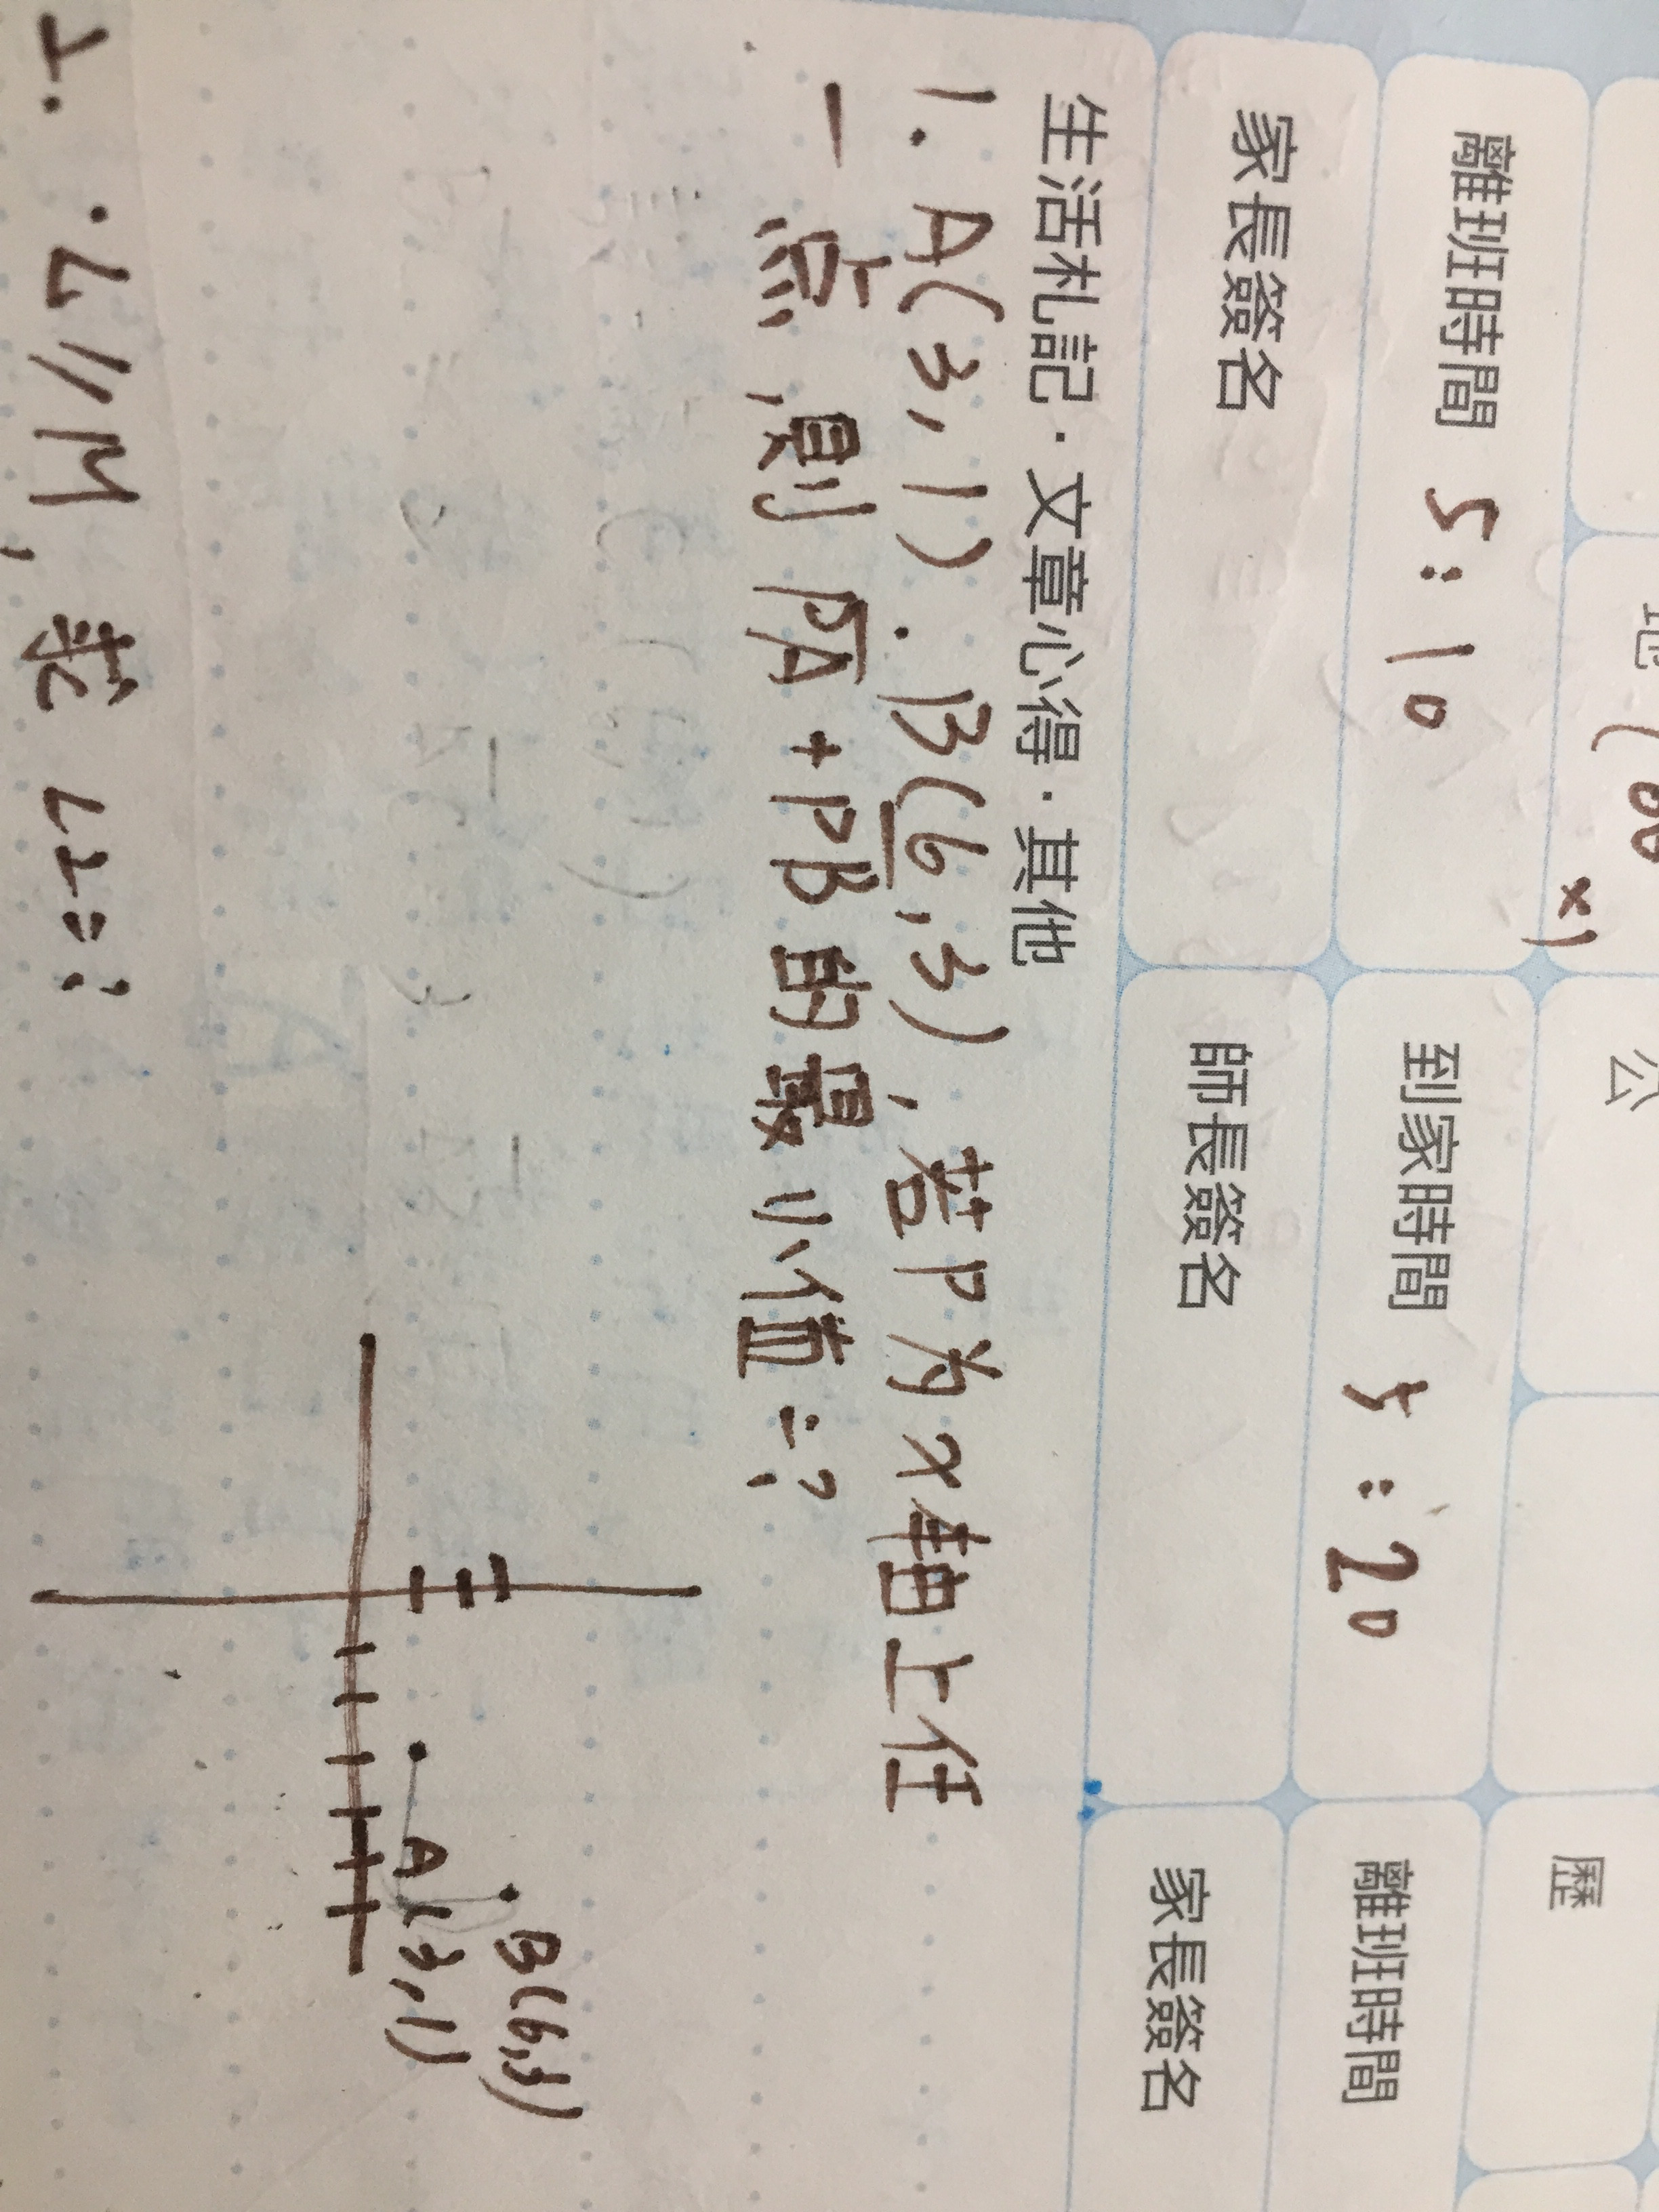 地(66
x)
公
歷
離班時間 5:10
到家時間 5:20
離班時間
家長簽名
師長簽名
家長簽名
生活札記·文章心得·其他
1. A(3,1). B(6,3), 若P为x軸上任
一点, 則 PA+PB的最小值=?
B(6,3)
A(3,1)
2. ·L//M, 求∠2=?